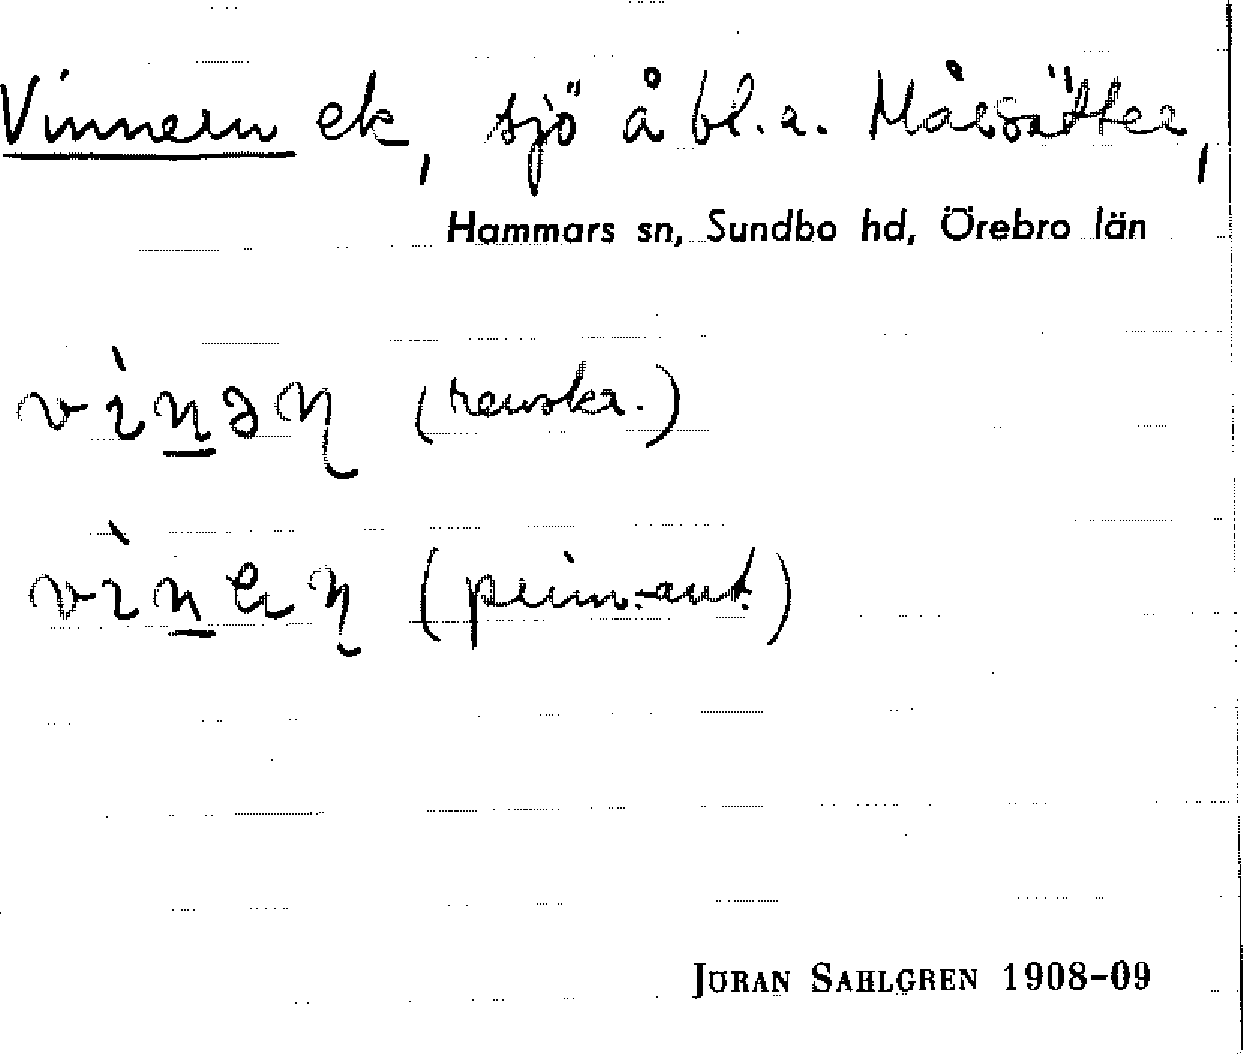 Vinnern ek, sjö å bl.a. Mårsätter,
Hammars sn, Sundbo hd, Örebro län
(renskr.)
(prim.-ant.)
JÖRAN SAHLGREN 1908-09